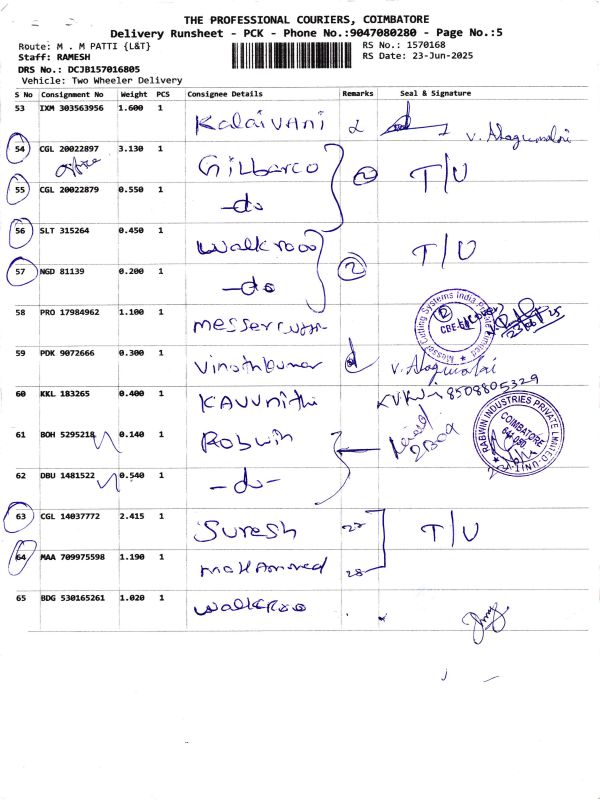 THE PROFESSIONAL COURIERS, COIMBATORE
Delivery Runsheet - PCK - Phone No.:9047080280 - Page No.:5
Route: M . M PATTI {L&T}
RS No.: 1570168
Staff: RAMESH
RS Date: 23-Jun-2025
DRS No.: DCJB157016805
Vehicle: Two Wheeler Delivery
S No Consignment No Weight PCS Consignee Details Remarks Seal & Signature
53 IXM 303563956 1.600 1 Kalaivani v. Alagumalai
54 CGL 20022897 3.130 1 Gilbarco 2 T/U
office
55 CGL 20022879 0.550 1 -do
56 SLT 315264 0.450 1 Walkroo T/U
57 NGD 81139 0.200 1 -do 2
58 PRO 17984962 1.100 1 Messer Cutting Systems India Private Limited
59 PDK 9072666 0.300 1 Vinothkumar V. Alagumalai
60 KKL 183265 0.400 1 KAVVNithi 8508805329
61 BOH 5295218 0.140 1 Robwin
RABWIN INDUSTRIES PRIVATE LIMITED-UNIT-I
COIMBATORE
62 DBU 1481522 0.540 1 -do-
63 CGL 14037772 2.415 1 Suresh 27 T/U
64 MAA 709975598 1.190 1 Mohammed 28
65 BDG 530165261 1.020 1 Walkroo